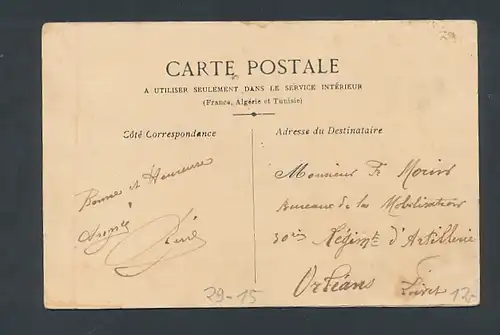 CARTE POSTALE
A UTILISER SEULEMENT DANS LE SERVICE INTÉRIEUR
(France, Algérie et Tunisie)
Côté Correspondance
Adresse du Destinataire
Bonne et Heureuse
René
Monsieur Fr Morin
Bureau de la Mobilisation
30ie Régimt d'Artillerie
Orléans
Loiret
29-15
12-